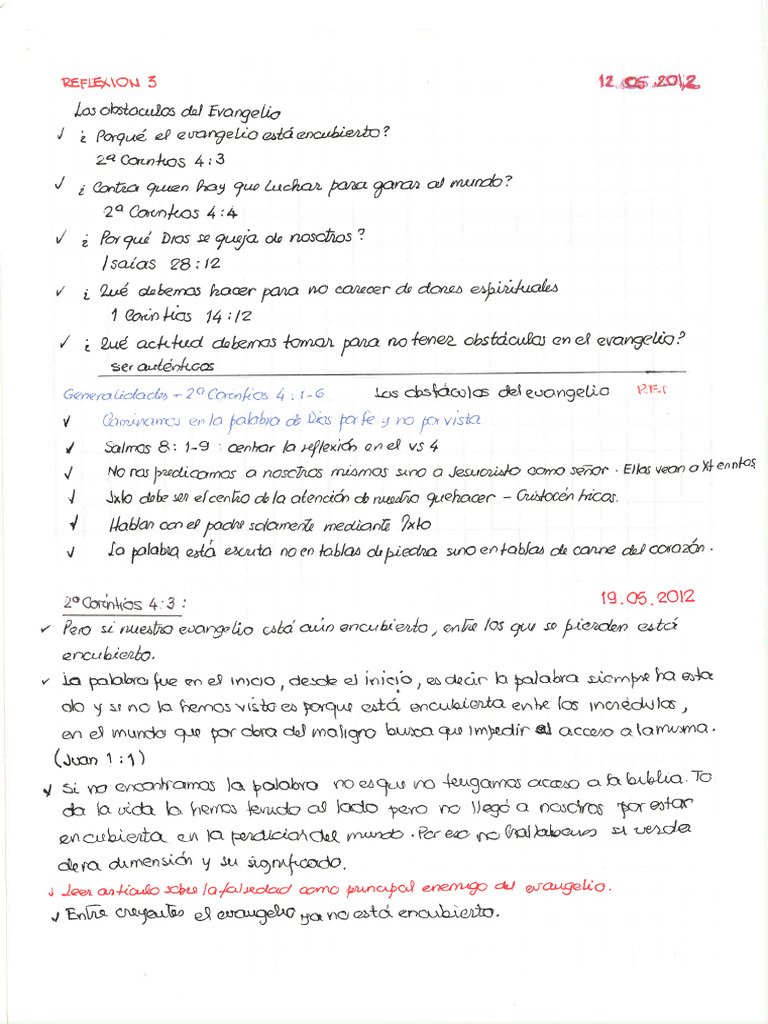 REFLEXION 3 12.05.2012
Los obstaculos del Evangelio
✓ ¿ Porqué el evangelio está encubierto?
2ª Corintios 4:3
✓ ¿ Contra quien hay que luchar para ganar al mundo?
2ª Corintios 4:4
✓ ¿ Por qué Dios se queja de nosotros?
Isaías 28:12
✓ ¿ Qué debemos hacer para no carecer de dones espirituales
1 Corintios 14:12
✓ ¿ Qué actitud debemos tomar para no tener obstáculos en el evangelio?
ser auténticos
Generalidades - 2ª Corintios 4:1-6 Los obstáculos del evangelio
✓ Caminamos en la palabra de Dios por fe y no por vista
✓ Salmos 8:1-9: centrar la reflexión en el vs 4
✓ No nos predicamos a nosotros mismos sino a Jesucristo como señor. Ellos vean a Xt en ntos
✓ Jxto debe ser el centro de la atención de nuestro quehacer - Cristocéntricos.
✓ Hablan con el padre solamente mediante Jxto
✓ La palabra está escrita no en tablas de piedra sino en tablas de carne del corazón.
2ª Corintios 4:3: 19.05.2012
✓ Pero si nuestro evangelio está aún encubierto, entre los que se pierden está
encubierto.
✓ La palabra fue en el inicio, desde el inicio, es decir la palabra siempre ha esta
do y si no la hemos visto es porque está encubierta entre los incrédulos,
en el mundo que por obra del maligno busca que impedir el acceso a la misma.
(Juan 1:1)
✓ Si no encontramos la palabra no es que no tengamos acceso a la biblia. To
da la vida la hemos tenido al lado pero no llegó a nosotros por estar
encubierta en la perdición del mundo. Por eso no hallabamos su verda
dera dimensión y su significado.
✓ Leer artículo sobre la falsedad como principal enemigo del evangelio.
✓ Entre creyentes el evangelio ya no está encubierto.